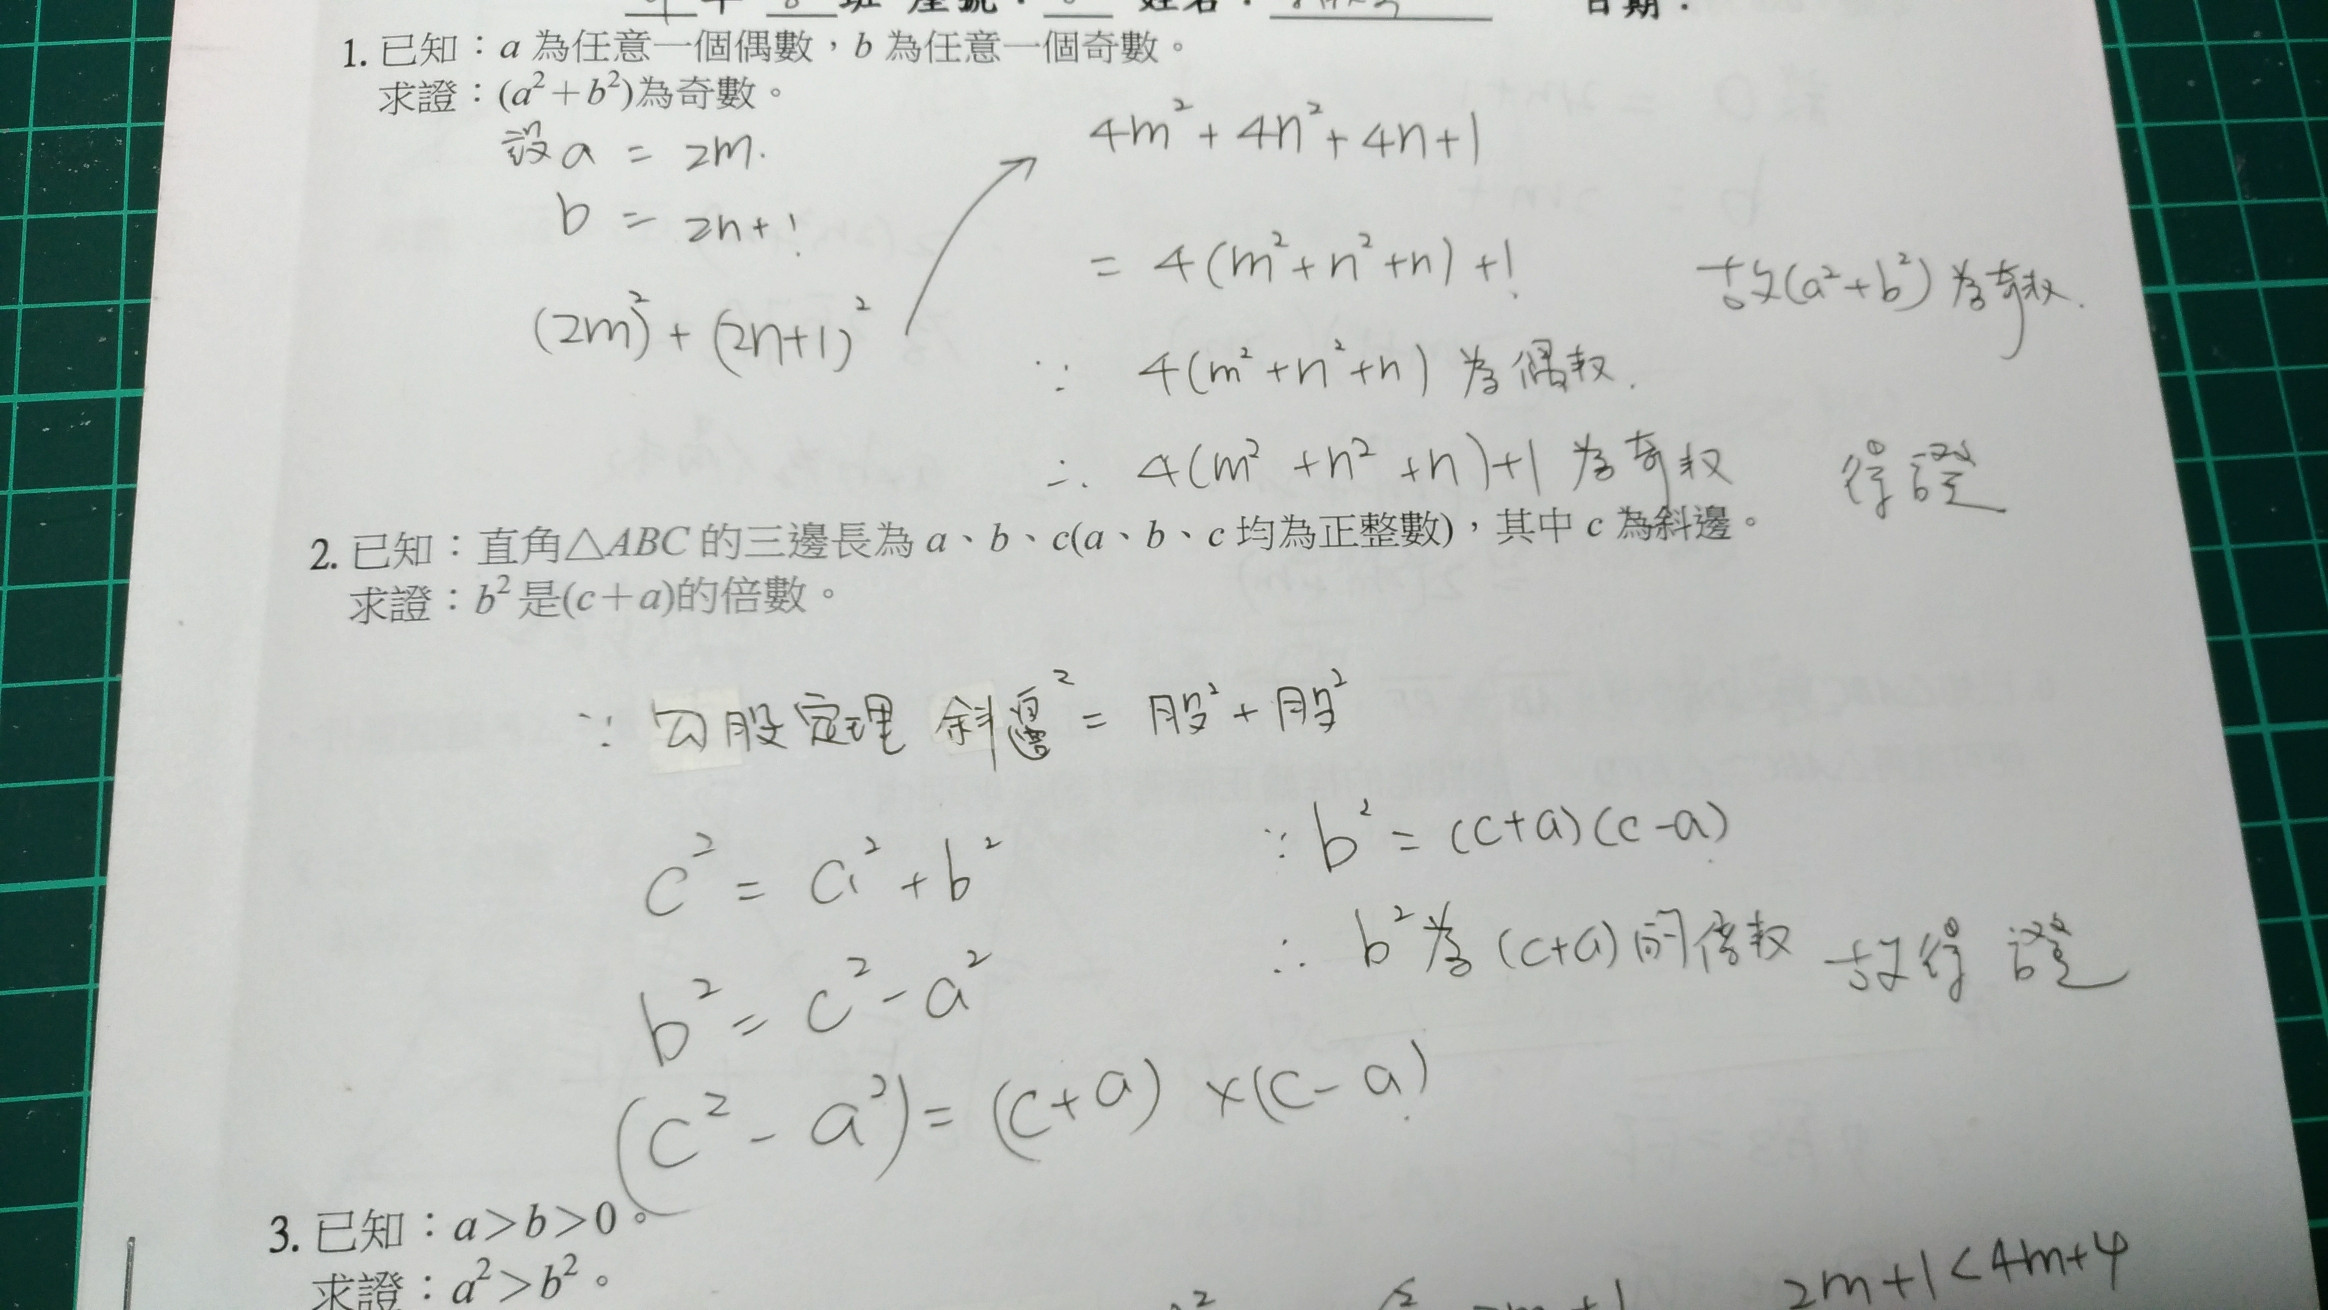 年 8 班 座號： 姓名： 日期：
1. 已知：a 為任意一個偶數，b 為任意一個奇數。
求證：(a²＋b²)為奇數。
設 a = 2m.
b = 2n+1
(2m)² + (2n+1)²
4m² + 4n² + 4n+1
= 4(m²+n²+n)+1
∵ 4(m²+n²+n) 為偶数.
∴ 4(m²+n²+n)+1 為奇数
故(a²+b²)為奇数.
得證
2. 已知：直角△ABC 的三邊長為 a、b、c(a、b、c 均為正整數)，其中 c 為斜邊。
求證：b² 是(c＋a)的倍數。
∵ 勾股定理 斜邊² = 股² + 股²
c² = a² + b²
b² = c² - a²
(c² - a²) = (c+a) ×(c-a)
∵ b² = (c+a)(c-a)
∴ b² 為 (c+a) 的倍数 故得證
3. 已知：a＞b＞0。
求證：a²＞b²。
2m+1<4m+4